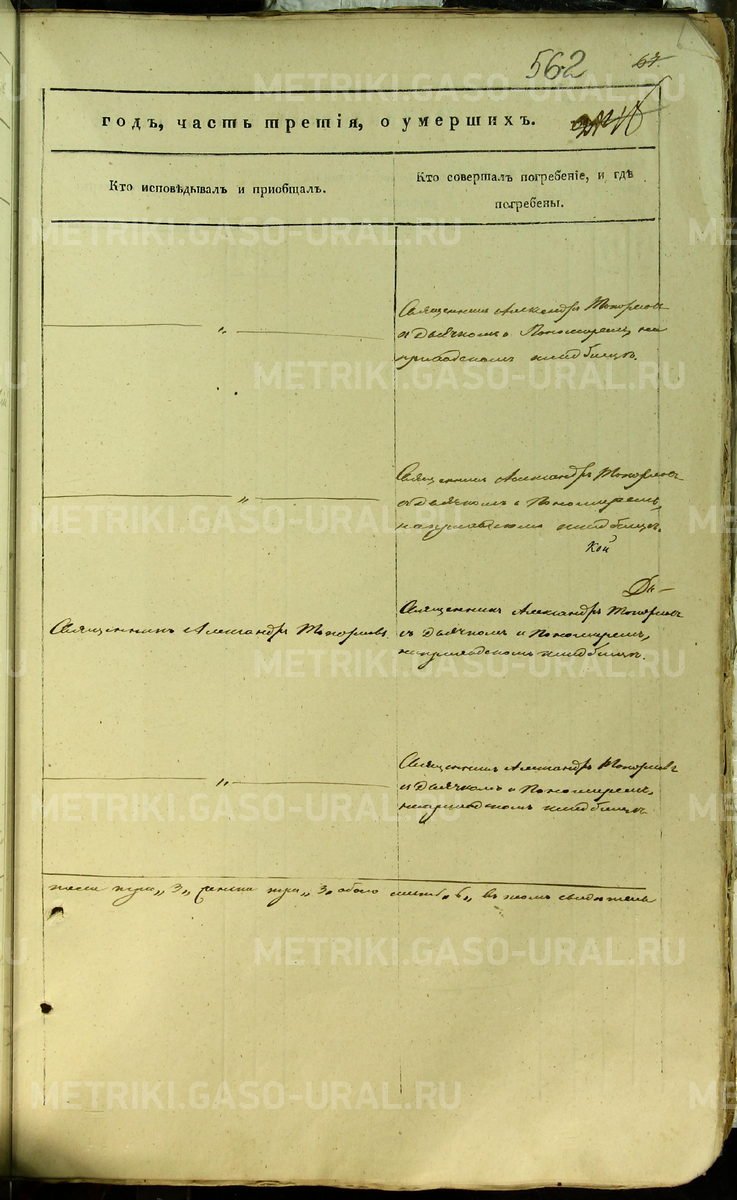 562 67.
годъ, часть третія, о умершихъ.
Кто исповѣдывалъ и приобщалъ.
Кто совершалъ погребеніе, и гдѣ
погребены.
„
Священникъ Александръ Топорковъ
съ Дьячкомъ и Пономаремъ, на
приходскомъ кладбищѣ.
„
Священникъ Александръ Топорковъ
съ Дьячкомъ и Пономаремъ,
на приходскомъ кладбищѣ.
кой
Ди-
Священникъ Александръ Топорковъ
Священникъ Александръ Топорковъ
съ Дьячкомъ и Пономаремъ,
на приходскомъ кладбищѣ.
„
Священникъ Александръ Топорковъ
съ Дьячкомъ и Пономаремъ,
на приходскомъ кладбищѣ.
три „3„ три „3„ обоего „6„ въ томъ
METRIKI.GASO-URAL.RU